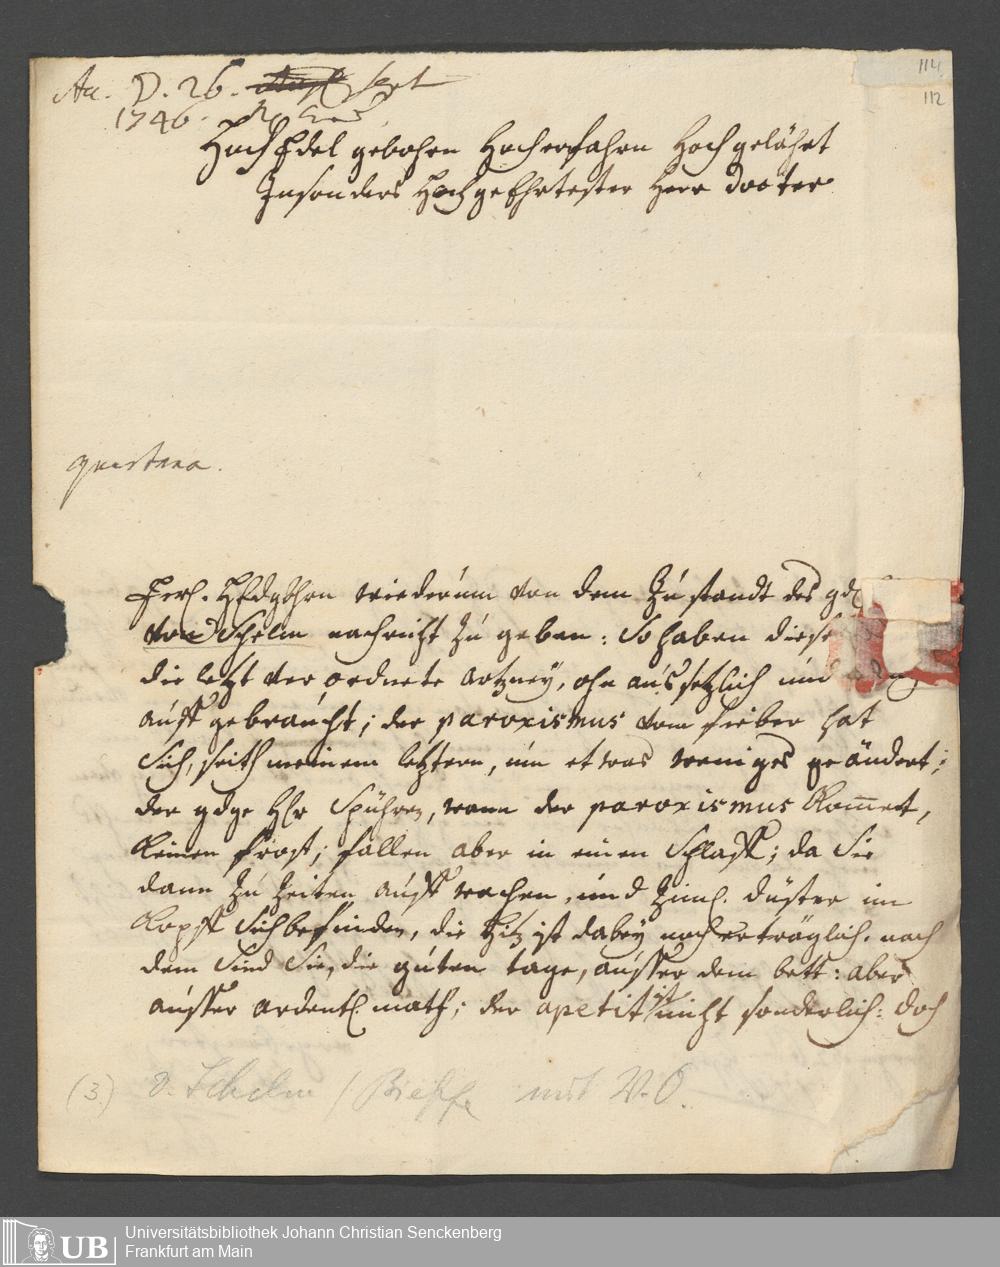 114
112
Aa. D. 26. Sept
1746.
HochEdel gebohrn Hocherfahrn Hochgelährt
Insonders HochgeEhrtester Herr Docter
quartana.
Ewl. HEdgbhrn wiederum von dem Zustandt des gdl
von Schelm nachricht zu geben: So haben diese
die letzt verordnete artzney, ohn aussetzlich und
auff gebraucht; der paroxismus vom fieber hat
sich, seith meinem letztern, um etwas weniges geändert;
der gdge Hr Spühren, wann der paroxismus kom̄et,
keinen frost; fallen aber in einen Schlaff; da Sie
dann zu zeiten auff wachen, und ziml. düster im
Kopff sich befinden, die Hitz ist dabey noch erträglich. nach
dem sind Sie, die guten tage, ausser dem bett: aber
ausser ordentl. math; der apetit ist nicht sonderlich: doch
(3.) v. Schelm / Bieffe mit V.O.
UB
Universitätsbibliothek Johann Christian Senckenberg
Frankfurt am Main